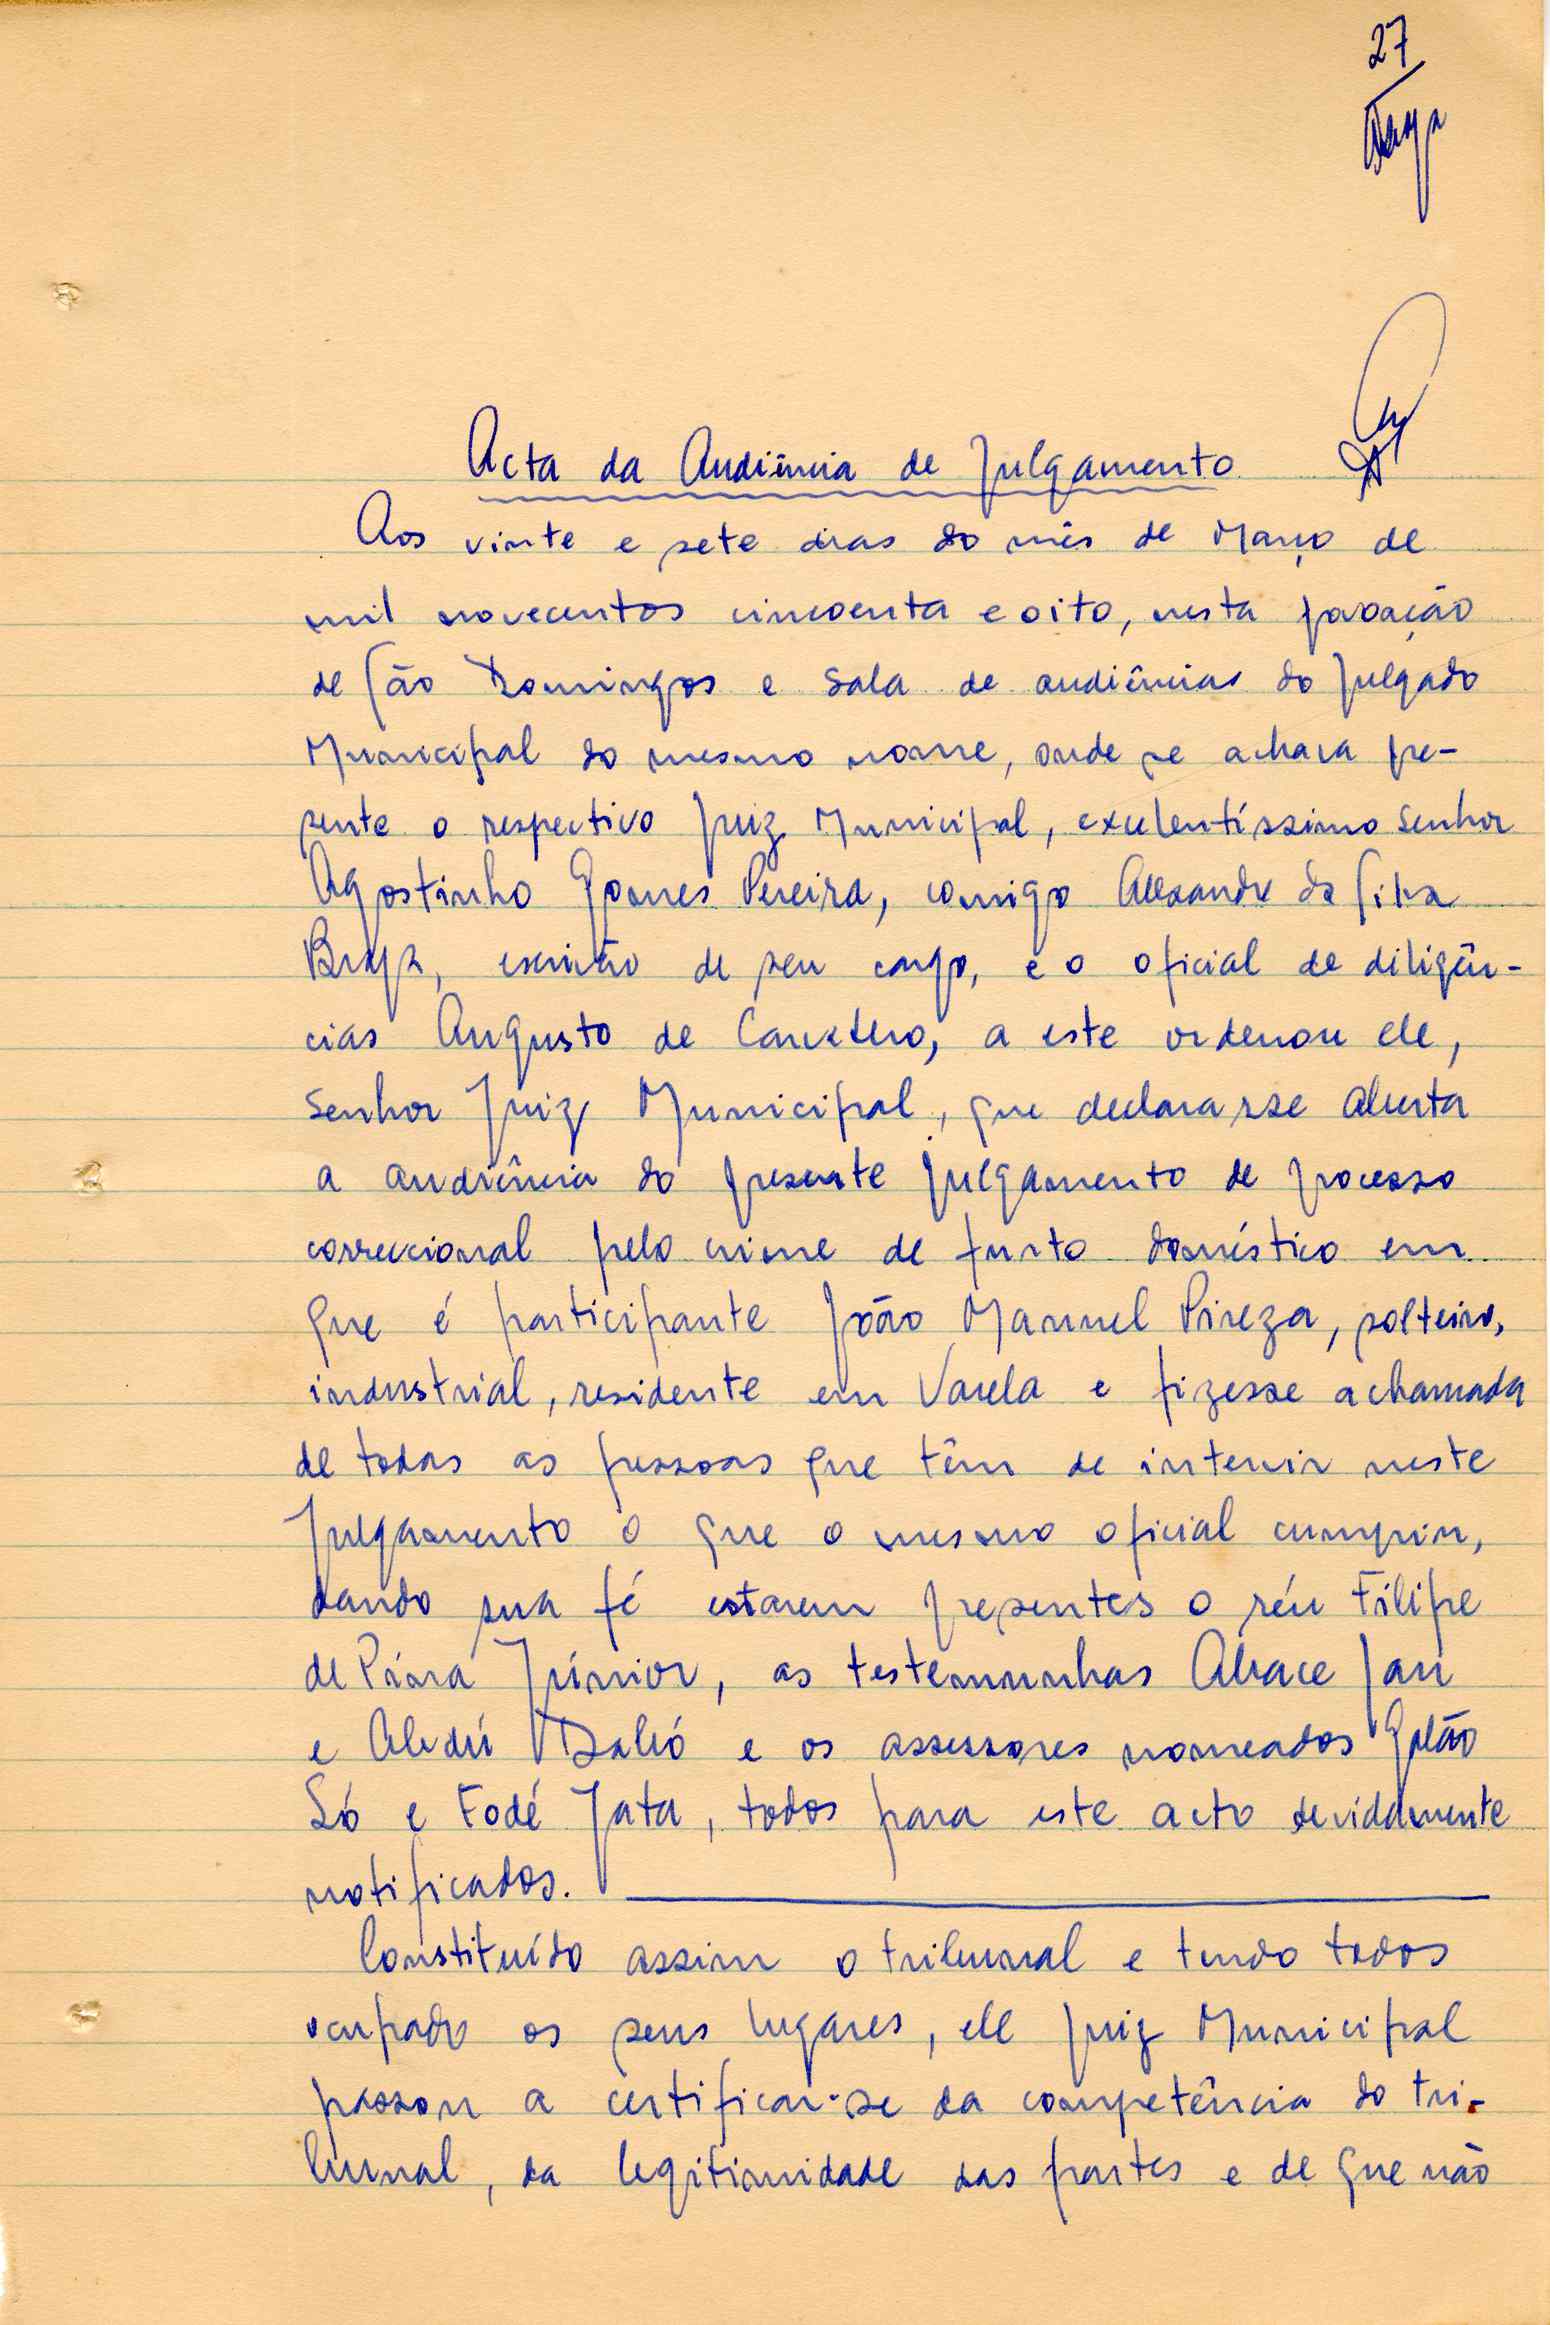 27
Braga
Acta da Audiência de Julgamento
Aos vinte e sete dias do mês de Março de
mil novecentos cincoenta e oito, nesta povoação
de São Domingos e sala de audiências do Julgado
Municipal do mesmo nome, onde se achava pre-
sente o respectivo Juiz Municipal, excelentíssimo senhor
Agostinho Gomes Pereira, comigo Alexandre da Silva
Braga, escrivão de seu cargo, e o oficial de diligên-
cias Augusto de Carvalho, a este ordenou ele,
senhor Juiz Municipal, que declarasse aberta
a audiência do presente julgamento de processo
correccional pelo crime de furto doméstico em
que é participante João Manuel Pireza, solteiro,
industrial, residente em Varela e fizesse a chamada
de todas as pessoas que têm de intervir neste
julgamento o que o mesmo oficial cumpriu,
dando sua fé estarem presentes o réu Filipe
de Pina Júnior, as testemunhas Abace Jau
e Aladú Baldó e os assessores nomeados
Só e Fodé Jata, todos para este acto devidamente
notificados.
Constituído assim o tribunal e tendo todos
ocupado os seus lugares, ele Juiz Municipal
passou a certificar-se da competência do tri-
bunal, da legitimidade das partes e de que não